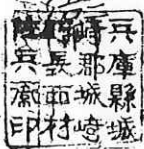 兵庫縣城
崎郡城崎
町長西村
佐兵衞印